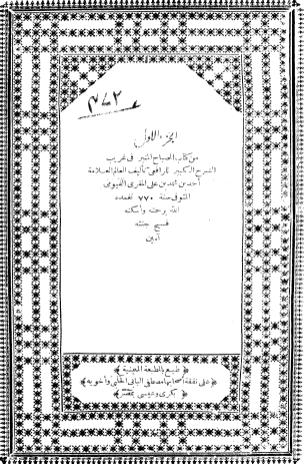 ٧٤٢
الجزء الاول
من كتاب المصباح المنير فى غريب
الشرح الكبير للرافعى تأليف العالم العلامة
أحمد بن محمد بن على المقرى الفيومى
المتوفى سنة ٧٧٠ تغمده
الله برحمته وأسكنه
فسيح جنته
آمين
﴿ طبع بالمطبعة الميمنية ﴾
﴿ على نفقة أصحابها مصطفى البابى الحلبى وأخويه ﴾
﴿ بكرى وعيسى بمصر ﴾